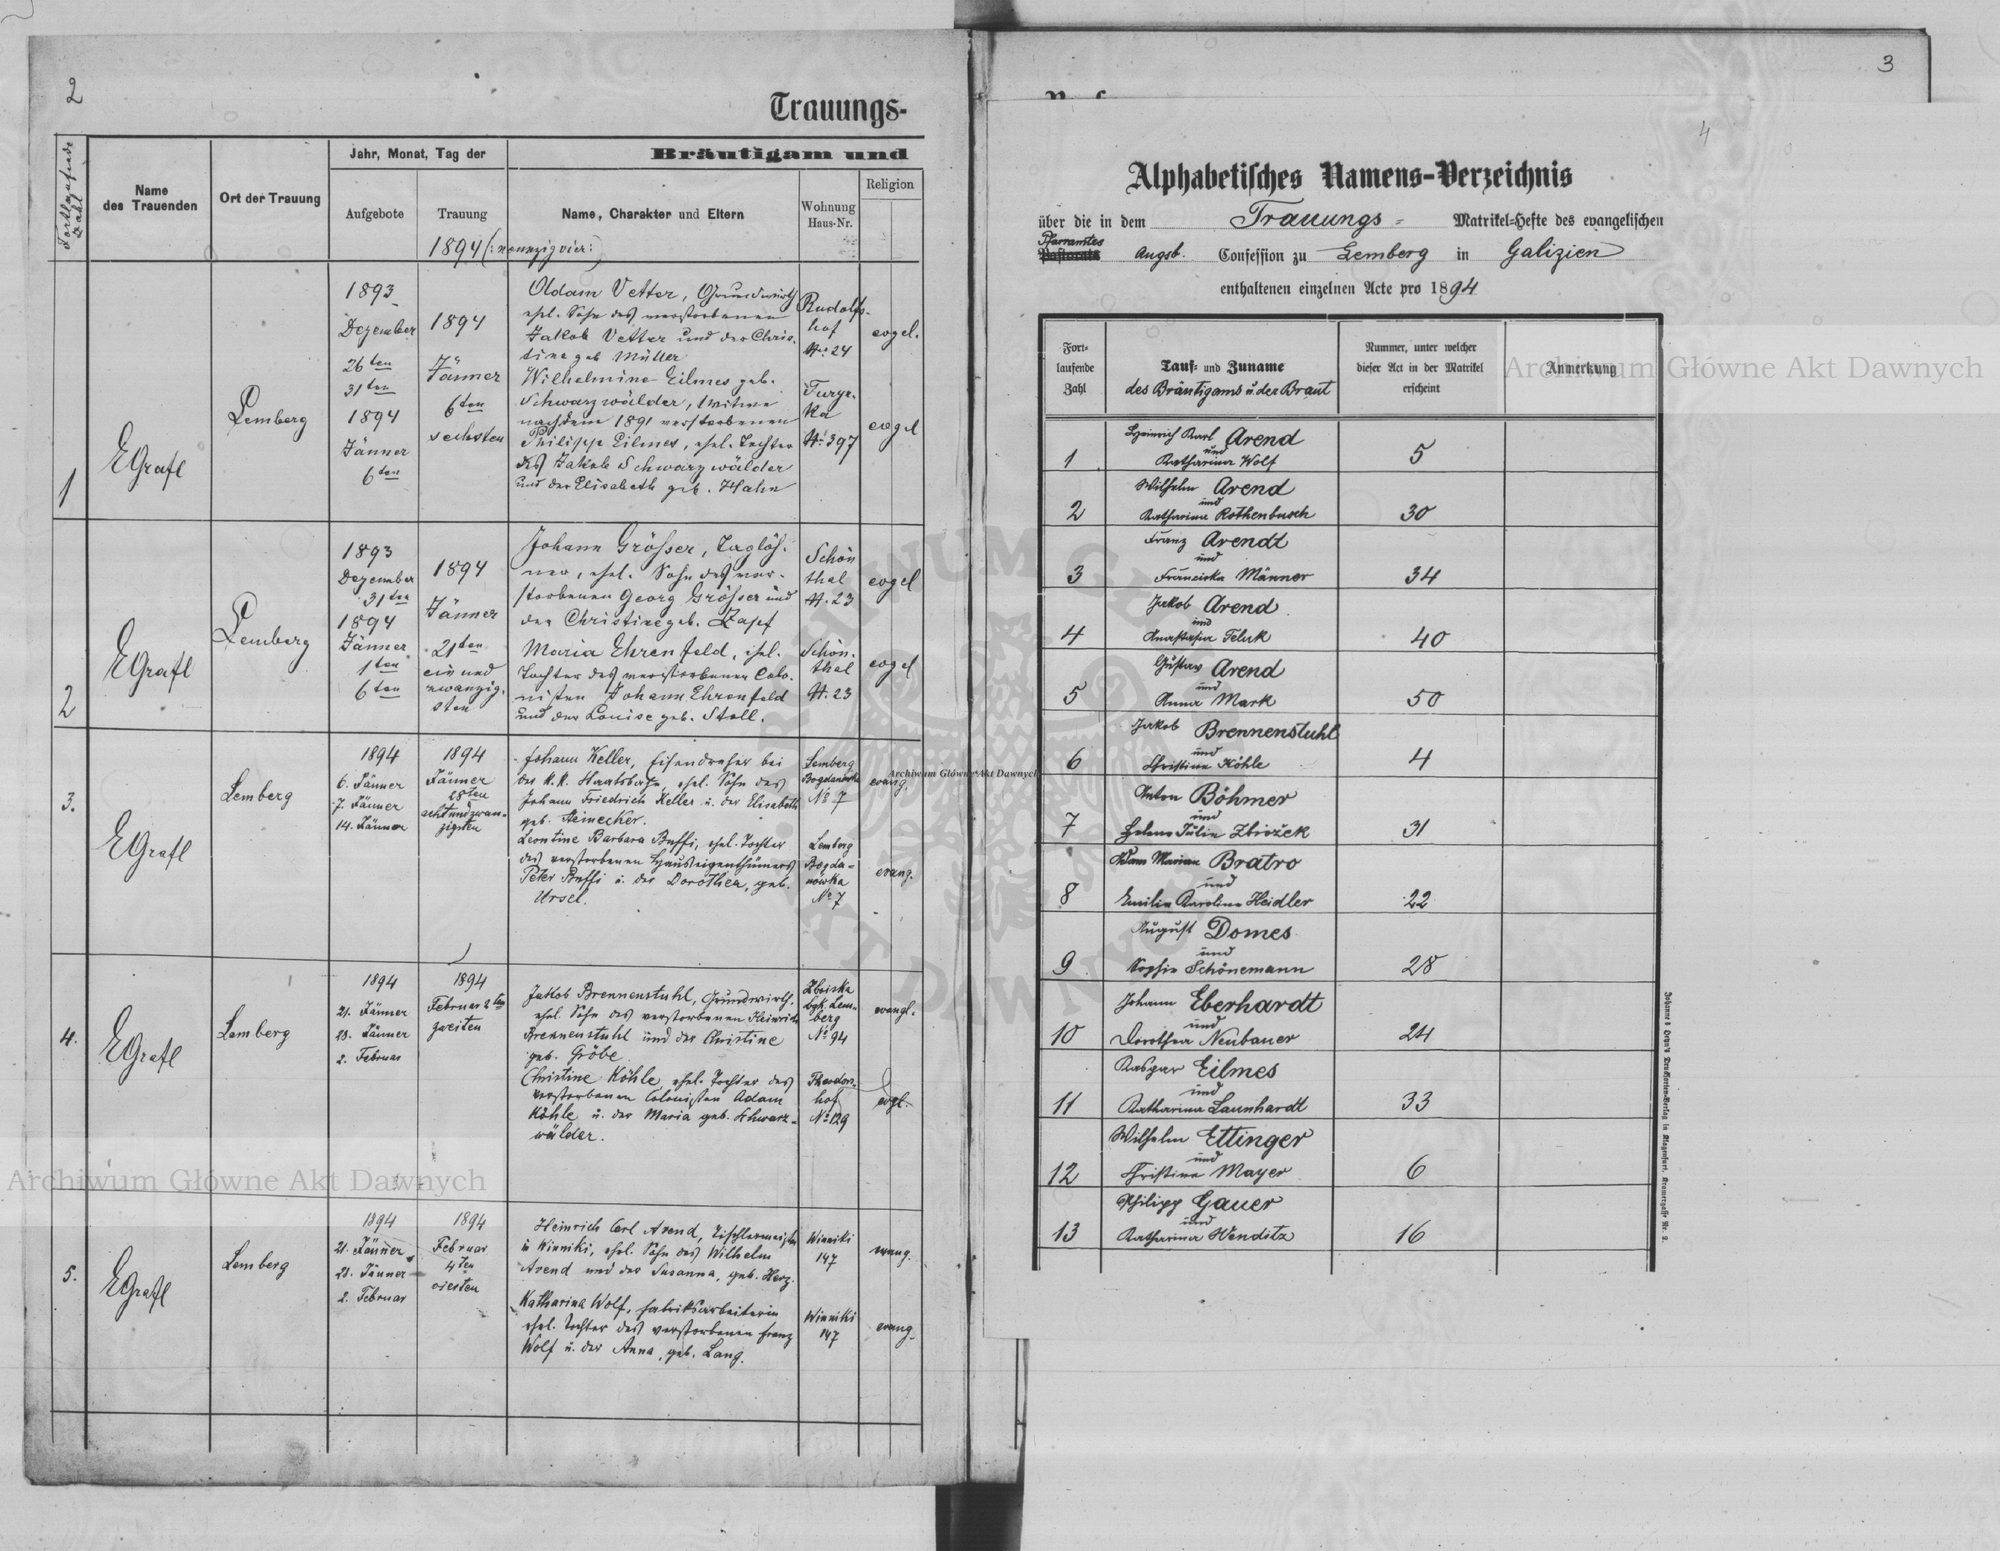 2
Trauungs-
Fortlaufende Zahl
Name des Trauenden
Ort der Trauung
Jahr, Monat, Tag der
Aufgebote
Trauung
Bräutigam und
Name, Charakter und Eltern
Wohnung Haus-Nr.
Religion
1894 (:neunzigvier:)
1
EGrafl
Lemberg
1893
Dezember
26ten
31ten
1894
Jänner
6ten
1894
Jänner
6ten
sechsten
Adam Vetter, Grundwirth
ehel. Sohn des verstorbenen
Jakob Vetter und der Chris-
tine geb Müller
Wilhelmine Eilmes geb.
Schwarzwälder, Witwe
nach dem 1891 verstorbenen
Philipp Eilmes, ehel. Tochter
des Jakob Schwarzwälder
und der Elisabeth geb. Hahn
Rudolfs-
hof
Nr. 24
evgel.
397
evgel
2
EGrafl
Lemberg
1893
Dezember
31ten
1894
Jänner
1ten
6ten
1894
Jänner
21ten
ein und
zwanzig-
sten
Johann Grösser, Taglöh-
ner, ehel. Sohn des ver-
storbenen Georg Grösser und
der Christine geb. Zapf
Maria Ehrenfeld, ehel.
Tochter des verstorbenen Colo-
nisten Johann Ehrenfeld
und der Louise geb. Stoll.
Schön
thal
N. 23
evgel
Schön-
thal
N. 23
evgel
3.
EGrafl
Lemberg
1894
6. Jänner
7. Jänner
14. Jänner
1894
Jänner
28ten
achtundzwan-
zigsten
Johann Keller, Eisendreher bei
der k.k. Staatsbahn, ehel. Sohn des
Johann Friedrich Keller u. der Elisabeth
geb. Heinecker.
Leontine Barbara Buffi, ehel. Tochter
des verstorbenen Hauseigenthümers
Peter Buffi u. der Dorothea, geb.
Ursel.
Lemberg
Bogdanówka
No 7
evang.
Lemberg
Bogda-
nówka
No 7
evang.
4.
EGrafl
Lemberg
1894
21. Jänner
28. Jänner
2. Februar
1894
Februar 2ten
zweiten
Jakob Brennenstuhl, Grundwirth.
ehel. Sohn des verstorbenen Heinrich
Brennenstuhl und der Christine
geb. Gröbe
Christine Köhle, ehel. Tochter des
verstorbenen Colonisten Adam
Köhle u. der Maria geb. Schwarz-
wälder.
Zboiska
bgk. Lem-
berg
No 94
evangl.
Theodors-
hof
No 129
evgl.
5.
EGrafl
Lemberg
1894
21. Jänner
28. Jänner
2. Februar
1894
Februar
4ten
vierten
Heinrich Carl Arend, Tischlermeister
in Winniki, ehel. Sohn des Wilhelm
Arend und der Susanna, geb. Herz.
Katharina Wolf, Fabriksarbeiterin
ehel. Tochter des verstorbenen Franz
Wolf u. der Anna, geb. Lang.
Winniki
147
evang.
Winniki
147
evang.
3
4
Alphabetisches Namens-Verzeichnis
über die in dem Trauungs- Matrikel-Hefte des evangelischen
Pfarramtes
Pastorats Augsb. Confession zu Lemberg in Galizien
enthaltenen einzelnen Acte pro 1894
Fort-laufende Zahl
Tauf- und Zuname
des Bräutigams u. der Braut
Nummer, unter welcher dieser Act in der Matrikel erscheint
Anmerkung
1 Heinrich Karl Arend und Katharina Wolf 5
2 Wilhelm Arend und Katharina Rothenbusch 30
3 Franz Arendt und Franciska Männer 34
4 Jakob Arend und Anastasia Teluk 40
5 Gustav Arend und Anna Mark 50
6 Jakob Brennenstuhl und Christine Köhle 4
7 Anton Böhmer und Helene Julie Zbrożek 31
8 Adam Marian Bratro und Emilie Karoline Heidler 22
9 August Domes und Sophie Schönemann 28
10 Johann Eberhardt und Dorothea Neubauer 24
11 Kaspar Eilmes und Katharina Launhardt 33
12 Wilhelm Ettinger und Christine Mayer 6
13 Philipp Gauer und Katharina Wenditz 16
Johannes Heyn's Drucksorten-Verlag in Klagenfurt, Kramergasse Nr. 2.
Archiwum Główne Akt Dawnych
Archiwum Główne Akt Dawnych
Archiwum Główne Akt Dawnych